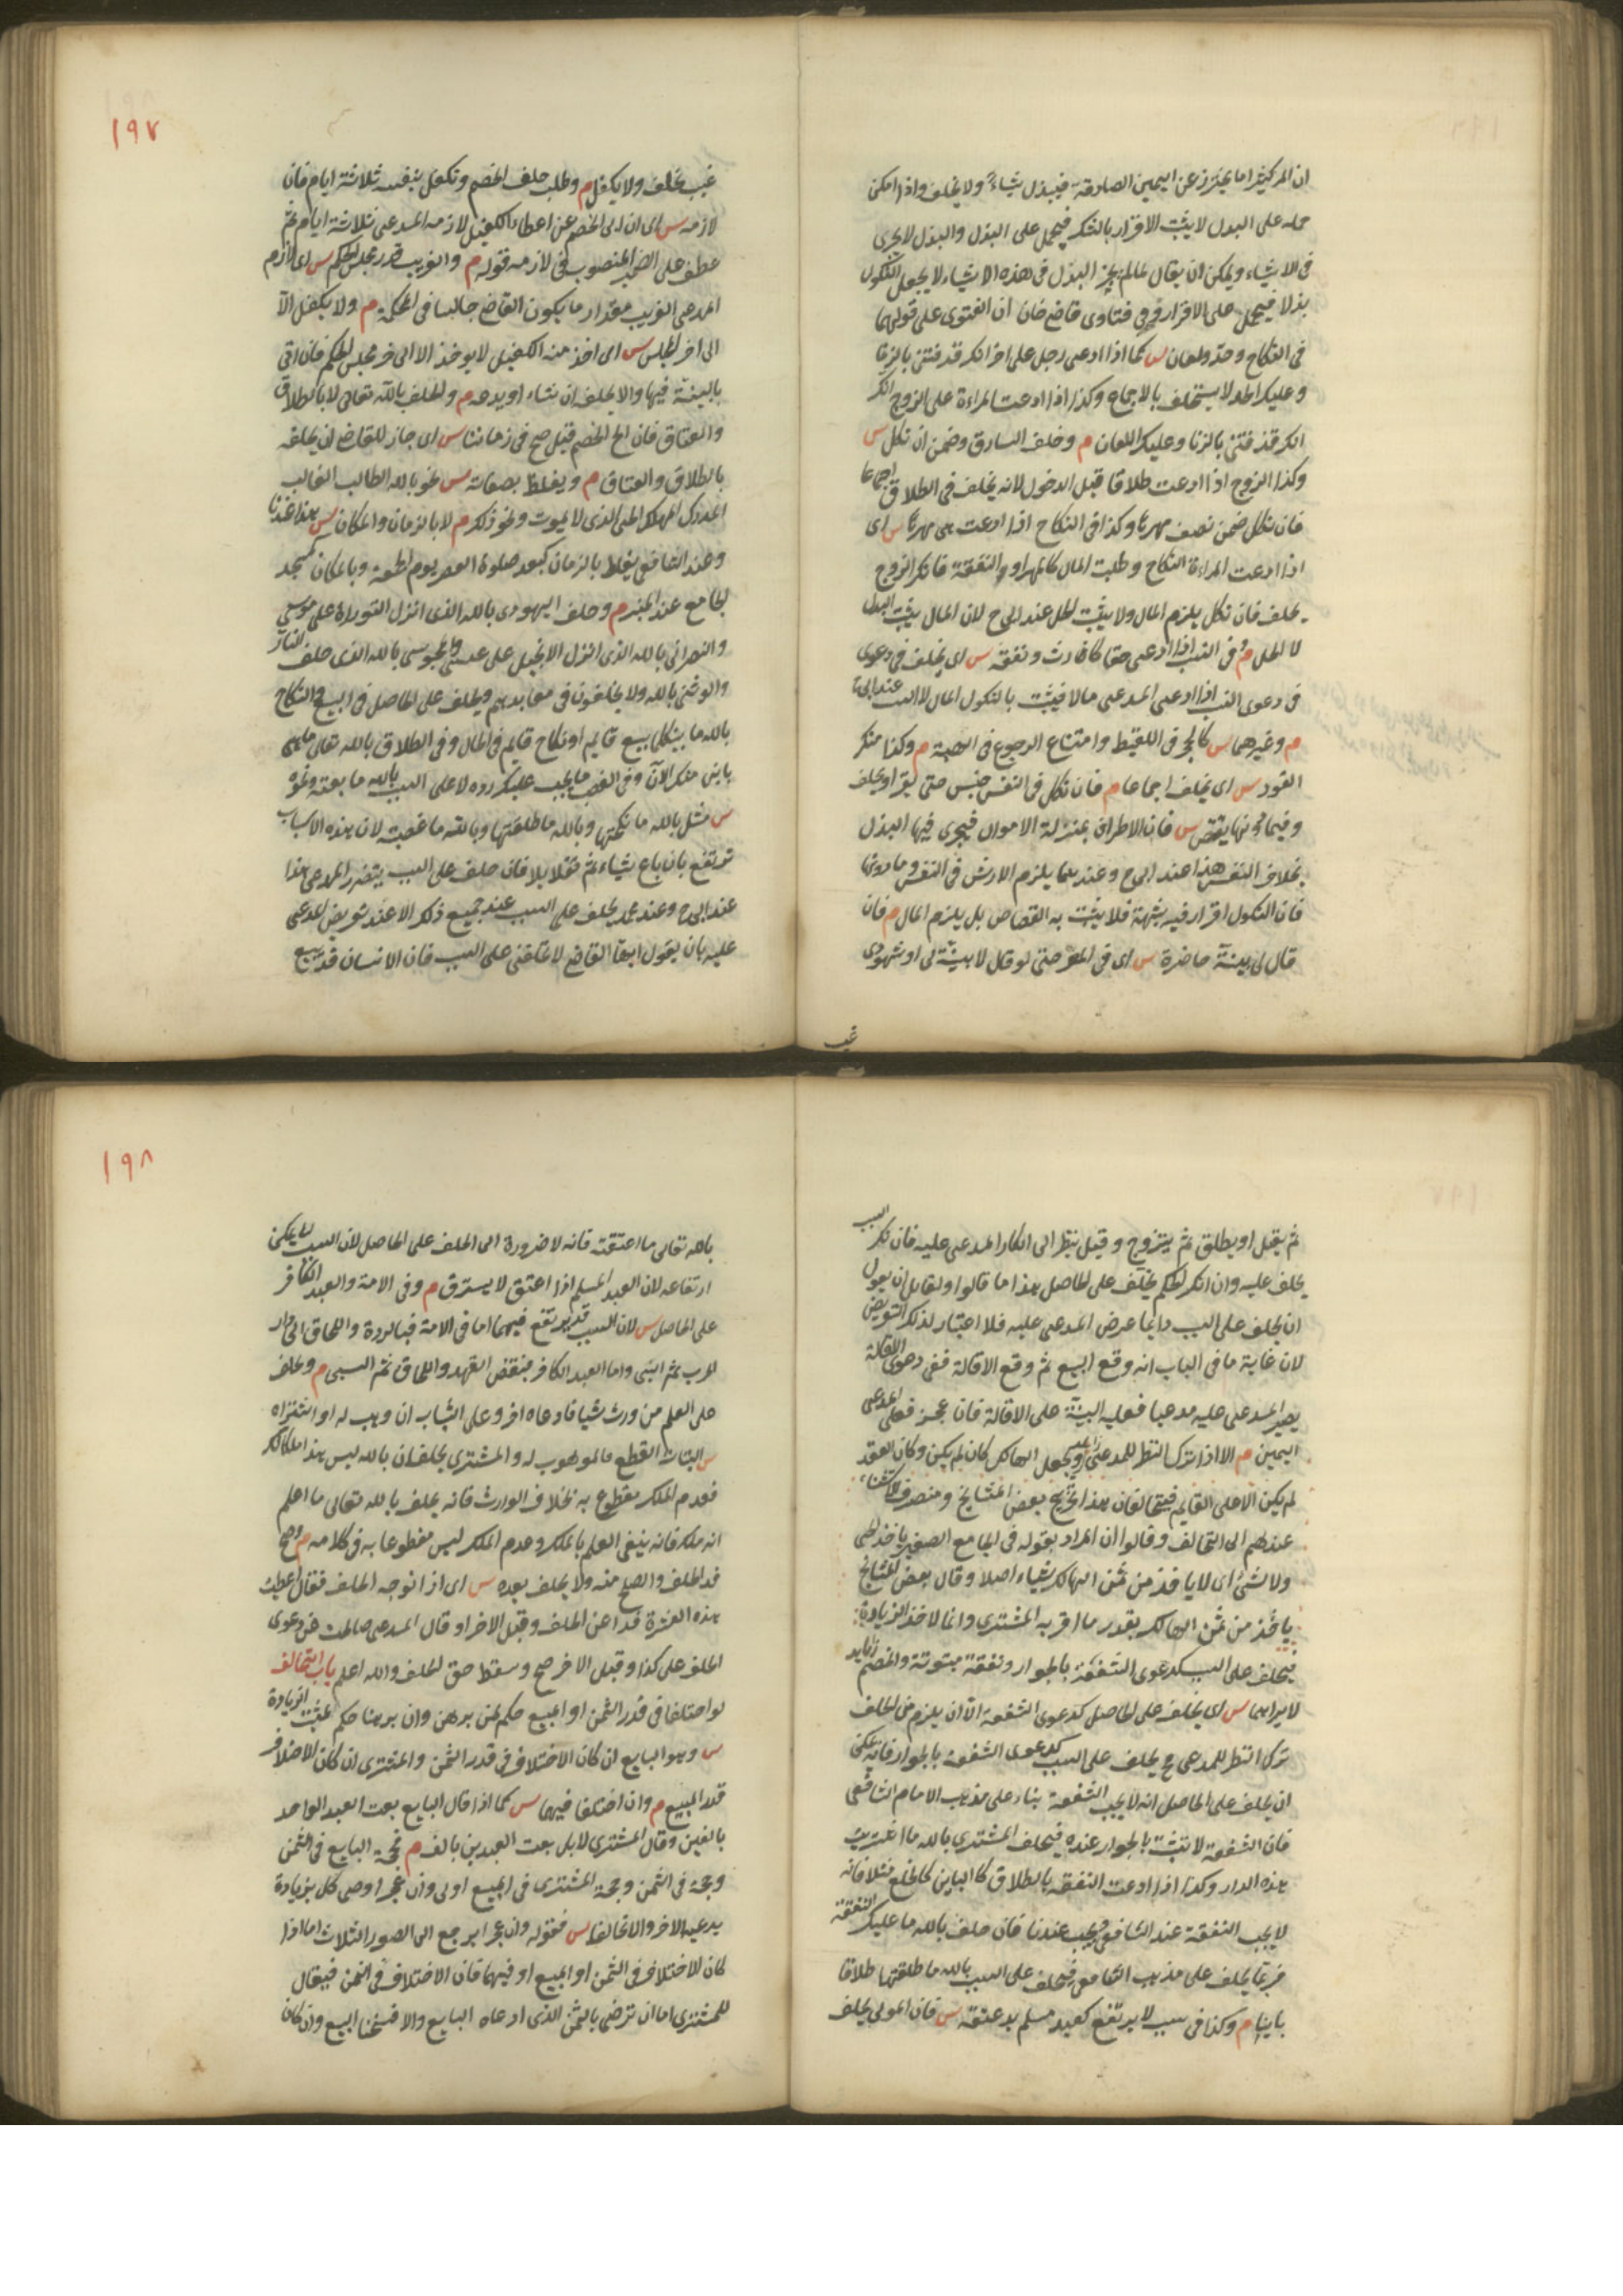 ان المرء كثيرا ما يحترز عن اليمين الصادقة فيبذل شياء ولا يحلف واذا امكن
حمله على البدل لا يثبت الاقرار بالشك فيحمل على البذل والبذل لا يجرى
فى الاشياء ويمكن ان يقال لما لم يجز البذل فى هذه الاشياء لا يجعل النكول
بذلا فيحمل على الاقرار وفى فتاوى قاضى خان ان الفتوى على قولهما
فى النكاح وحد ولعان س كما اذا ادعى رجل على اخر انك قد قذفتنى بالزنا
وعليك الحد لا يستحلف بالاجماع وكذا اذا ادعت المراءة على الزوج انك
انك قذفتنى بالزنا وعليك اللعان م وحلف السارق وضمن ان نكل س
وكذا الزوج اذا ادعت طلاقا قبل الدخول لانه يحلف فى الطلاق اجماعا
فان نكل ضمن نصف مهرها وكذا فى النكاح اذا ادعت هى مهرها س اى
اذا ادعت المراءة النكاح وطلبت المال كالمهر او النفقة فانكر الزوج
يحلف فان نكل يلزم المال ولا يثبت الحل عند ابى ح لان المال يثبت بالبدل
لا الحل م وفى النسب اذا ادعى حقا كارث ونفقة س اى يحلف فى دعوى
فى دعوى النسب اذا ادعى المدعى مالا فيثبت بالنكول المال لا النسب عند ابى ح
م وغيرهما س كالحجر فى اللقيط وامتناع الرجوع فى الهبة م وكذا منكر
القود س اى يحلف اجماعا م فان نكل فى النفس حبس حتى يقر او يحلف
وفيما دونها يقتص س فان الاطراف بمنزلة الاموال فيجرى فيها البذل
بخلاف النفس هذا عند ابى ح وعندهما يلزم الارش فى النفس وما دونها
فان النكول اقرار فيه شبهة فلا يثبت به القصاص بل يلزم المال م فان
قال لى بينة حاضرة س اى فى المصر حتى لو قال لا بينة لى او شهودى
غيب
١٩٧
غيب يحلف ولا يكفل م وطلب حلف الخصم ونكفل بنفسه ثلاثة ايام فان
لازمه س اى ان ابى الخصم عن اعطاء الكفيل لازمه المدعى ثلاثة ايام ثم
عطف على الضمير المنصوب فى لازمه قوله م والغريب قدر مجلس الحكم س اى لازم
المدعى الغريب مقدار ما يكون القاضى جالسا فى المحكمة م ولا يكفل الا
الى اخر المجلس س اى اخذ منه الكفيل لا يوخذ الا الى اخر مجلس الحكم فان اتى
بالبينة فيها والا يحلف ان شاء او يدعه م والحلف بالله تعالى لا بالطلاق
والعتاق فان الح الخصم قيل صح فى زماننا س اى جاز للقاضى ان يحلفه
بالطلاق والعتاق م ويغلظ بصفاته س نحو بالله الطالب الغالب
المدرك المهلك الحى الذى لا يموت ونحو ذلك م لا بالزمان والمكان س هذا عندنا
وعند الشافعى يغلظ بالزمان كبعد صلوة العصر يوم الجمعة وبالمكان كمسجد
الجامع عند المنبر م وحلف اليهودى بالله الذى انزل التوراة على موسى
والنصرانى بالله الذى انزل الانجيل على عيسى والمجوسى بالله الذى خلف النار
والوثنى بالله ولا يحلفون فى معابدهم ويحلف على الحاصل فى البيع والنكاح
بالله ما بينكما بيع قايم او نكاح قايم فى الحال وفى الطلاق بالله تعالى ما هى
باين منك الآن وفى الغصب ما يجب عليك رده لا على السبب بالله ما بعته ونحوه
س مثل بالله ما نكحتها وبالله ما طلقتها وبالله ما غصبت لان هذه الاسباب
ترتفع بان باع شياء ثم تقايلا فان حلف على السبب يتضرر المدعى هذا
عند ابى ح وعند محمد يحلف على السبب عند جميع ذلك الا عند تعريض المدعى
عليه بان يقول ايها القاضى لا تحلفنى على السبب فان الانسان قد يبيع
ثم يقيل او يطلق ثم يتزوج وقيل ينظر الى انكار المدعى عليه فان انكر السبب
يحلف عليه وان انكر الحكم يحلف على الحاصل هذا ما قالوا ولقايل ان يقول
ان يحلف على السبب دايما عرض المدعى عليه فلا اعتبار لذلك التعريض
لان غاية ما فى الباب انه وقع البيع ثم وقع الاقالة ففى دعوى الاقالة
يصير المدعى عليه مدعيا فعليه البينة على الاقالة فان عجز فعلى المدعى
اليمين م الا اذا ترك النظر للمدعى ويجعل الهالك كان لم يكن وكان العقد
لم يكن الا على القايم فيتحالفان هذا تخريج بعض المشايخ ومنصرف الاستثناء
عندهم الى التحالف وقالوا ان المراد بقوله فى الجامع الصغير ياخذ الحى
ولا شئ اى لا ياخذ من ثمن الهالك شياء اصلا وقال بعض المشايخ
ياخذ من ثمن الهالك بقدر ما اقر به المشترى وانما لا ياخذ الزيادة
فيحلف على السبب كدعوى الشفعة بالجوار ونفقة مبتوتة والخصم
لا يراهما س اى يحلف على الحاصل كدعوى الشفعة الا ان يلزم من الحلف
ترك النظر للمدعى ح يحلف على السبب كدعوى الشفعة بالجوار فانه يمكن
ان يحلف على الحاصل انه لا يجب الشفعة بناء على مذهب الامام الشافعى
فان الشفعة لا تثبت بالجوار عنده فيحلف المشترى بالله ما اشتريت
هذه الدار وكذا اذا ادعت النفقة بالطلاق كالباين كالخلع مثلا فانه
لا يجب النفقة عند الشافعى ويجب عندنا فان حلف بالله ما عليك النفقة
فربما يحلف على مذهب الشافعى فيحلف على السبب بالله ما طلقتها طلاقا
باينا م وكذا فى سبب لا يرتفع كعبد مسلم يدعى عتقه س فان المولى يحلف
١٩٨
بالله تعالى ما اعتقته فانه لا ضرورة الى الحلف على الحاصل لان السبب لا يمكن
ارتفاعه لان العبد المسلم اذا اعتق لا يسترق م وفى الامة والعبد الكافر
على الحاصل س لان السبب قد يرتفع فيهما اما فى الامة فبالردة واللحاق الى دار
الحرب ثم السبى واما العبد الكافر فبنقض العهد واللحاق ثم السبى م ويحلف
على العلم من ورث شيا فادعاه اخر وعلى البتات ان وهب له او اشتراه
س البتات القطع فالموهوب له والمشترى يحلفان بالله ليس هذا ملكا لك
فعدم الملك مقطوع به بخلاف الوارث فانه يحلف بالله تعالى ما اعلم
انه ملكك فانه ينفى العلم بالملك وعدم الملك ليس مقطوعا به فى كلامه م وصح
فداء الحلف والصلح منه ولا يحلف بعده س اى اذا توجه الحلف فقال اعطيت
هذه العشرة فداء عن الحلف وقبل الاخر او قال المدعى صالحت عن دعوى
الحلف على كذا وقبل الاخر صح وسقط حق الحلف والله اعلم باب التحالف
لو اختلفا فى قدر الثمن او المبيع حكم لمن برهن وان برهنا حكم لمثبت الزيادة
س وهو البايع ان كان الاختلاف فى قدر الثمن والمشترى ان كان الاختلاف
قدر المبيع م وان اختلفا فيهما س كما اذا قال البايع بعت العبد الواحد
بالفين وقال المشترى لا بل بعت العبدين بالف م فحجة البايع فى الثمن
وحجة فى الثمن وحجة المشترى فى المبيع اولى وان عجزا رضى كل بزيادة
يدعيه الاخر والا تحالفا س فقوله وان عجزا يرجع الى الصور الثلاث اما اذا
كان الاختلاف فى الثمن او المبيع او فيهما فان الاختلاف فى الثمن فيقال
للمشترى اما ان ترضى بالثمن الذى ادعاه البايع والا فسخنا البيع وان كان